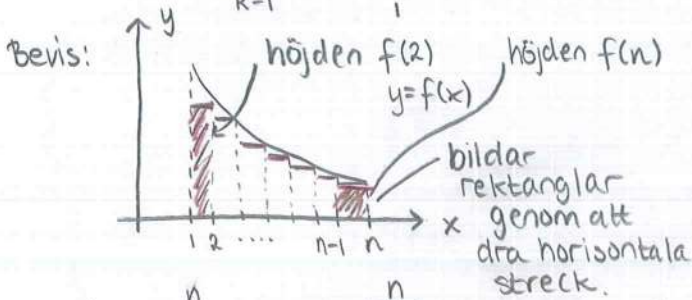 k=1 1
y
Bevis: höjden f(2) höjden f(n)
y=f(x)
bildar
rektanglar
x genom att
1 2 .... n-1 n dra horisontala
streck.
n n